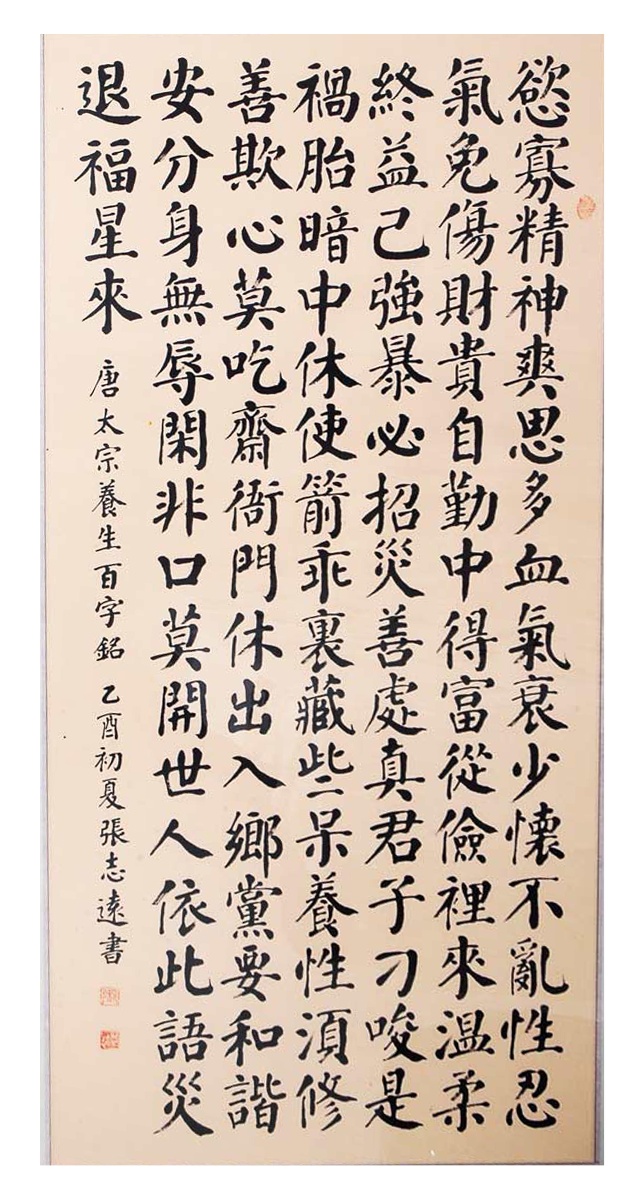 慾寡精神爽思多血氣衰少懷不亂性忍
氣免傷財貴自勤中得富從儉裡來温柔
終益己強暴必招災善處真君子刁唆是
禍胎暗中休使箭乖裏藏些呆養性須修
善欺心莫吃齋衙門休出入鄉黨要和諧
安分身無辱閑非口莫開世人依此語災
退福星來
唐太宗養生百字銘 乙酉初夏張志遠書